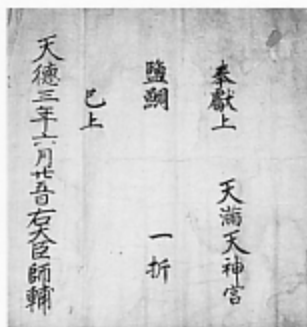 奉獻上 天滿天神宮
鹽鯛 一折
已上
天德三年六月廿五日右大臣師輔